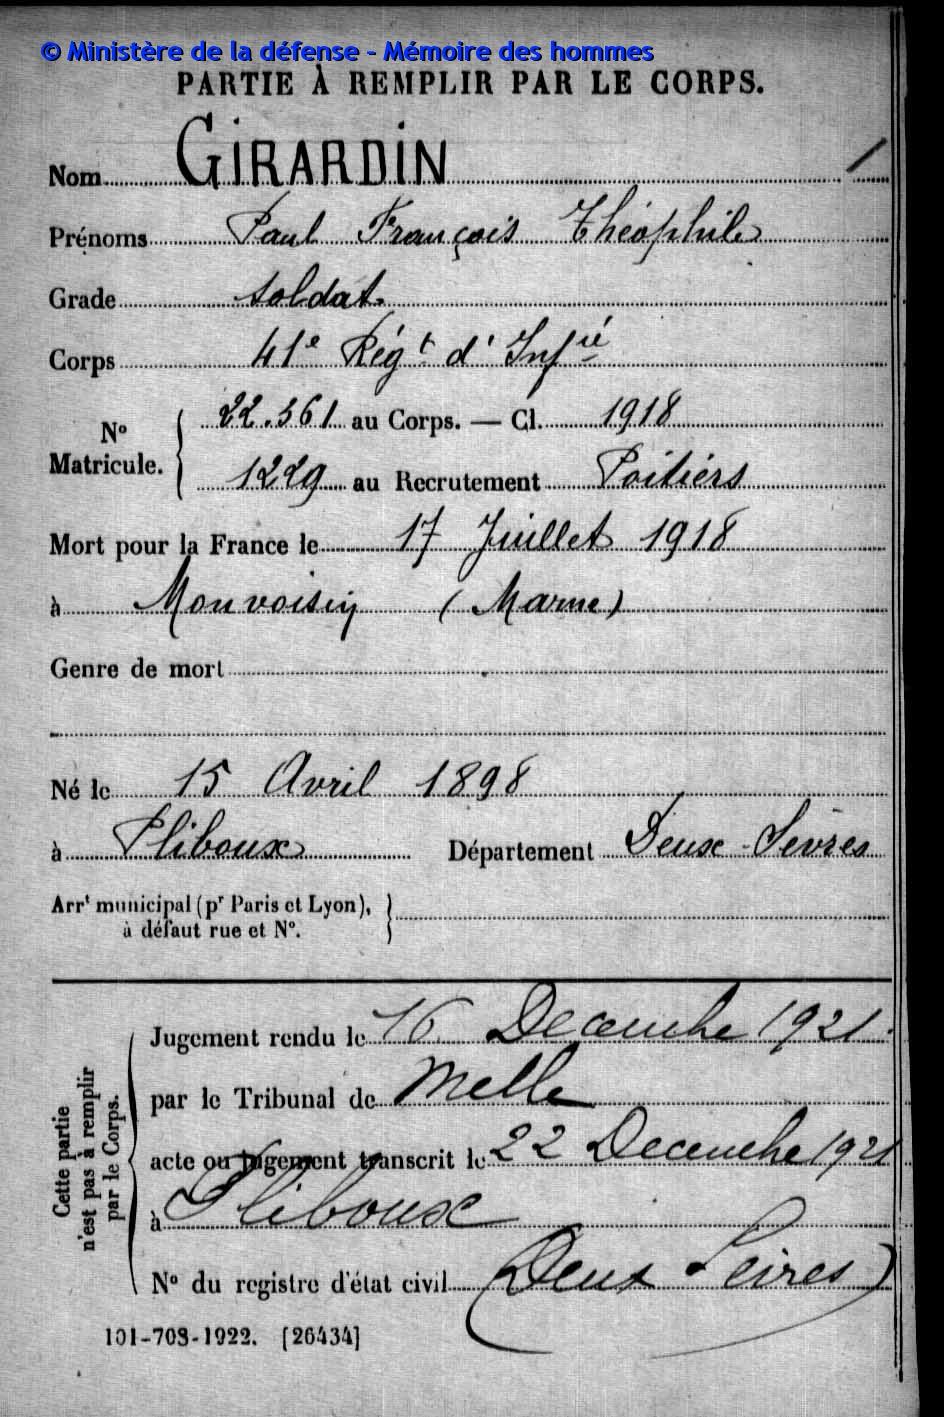 © Ministère de la défense - Mémoire des hommes
PARTIE À REMPLIR PAR LE CORPS.
Nom GIRARDIN 1
Prénoms Paul François Théophile
Grade soldat
Corps 41e Régt d'Infie
No Matricule. 22.561 au Corps. — Cl. 1918
1229 au Recrutement Poitiers
Mort pour la France le 17 Juillet 1918
à Monvoisin (Marne)
Genre de mort
Né le 15 Avril 1898
à Pliboux Département Deux-Sèvres
Arrt municipal (pr Paris et Lyon),
à défaut rue et No.
Cette partie
n'est pas à remplir
par le Corps.
Jugement rendu le 16 Decembre 1921
par le Tribunal de Melle
acte ou jugement transcrit le 22 Decembre 1921
à Pliboux
No du registre d'état civil (Deux Sevres)
101-708-1922. [26434]